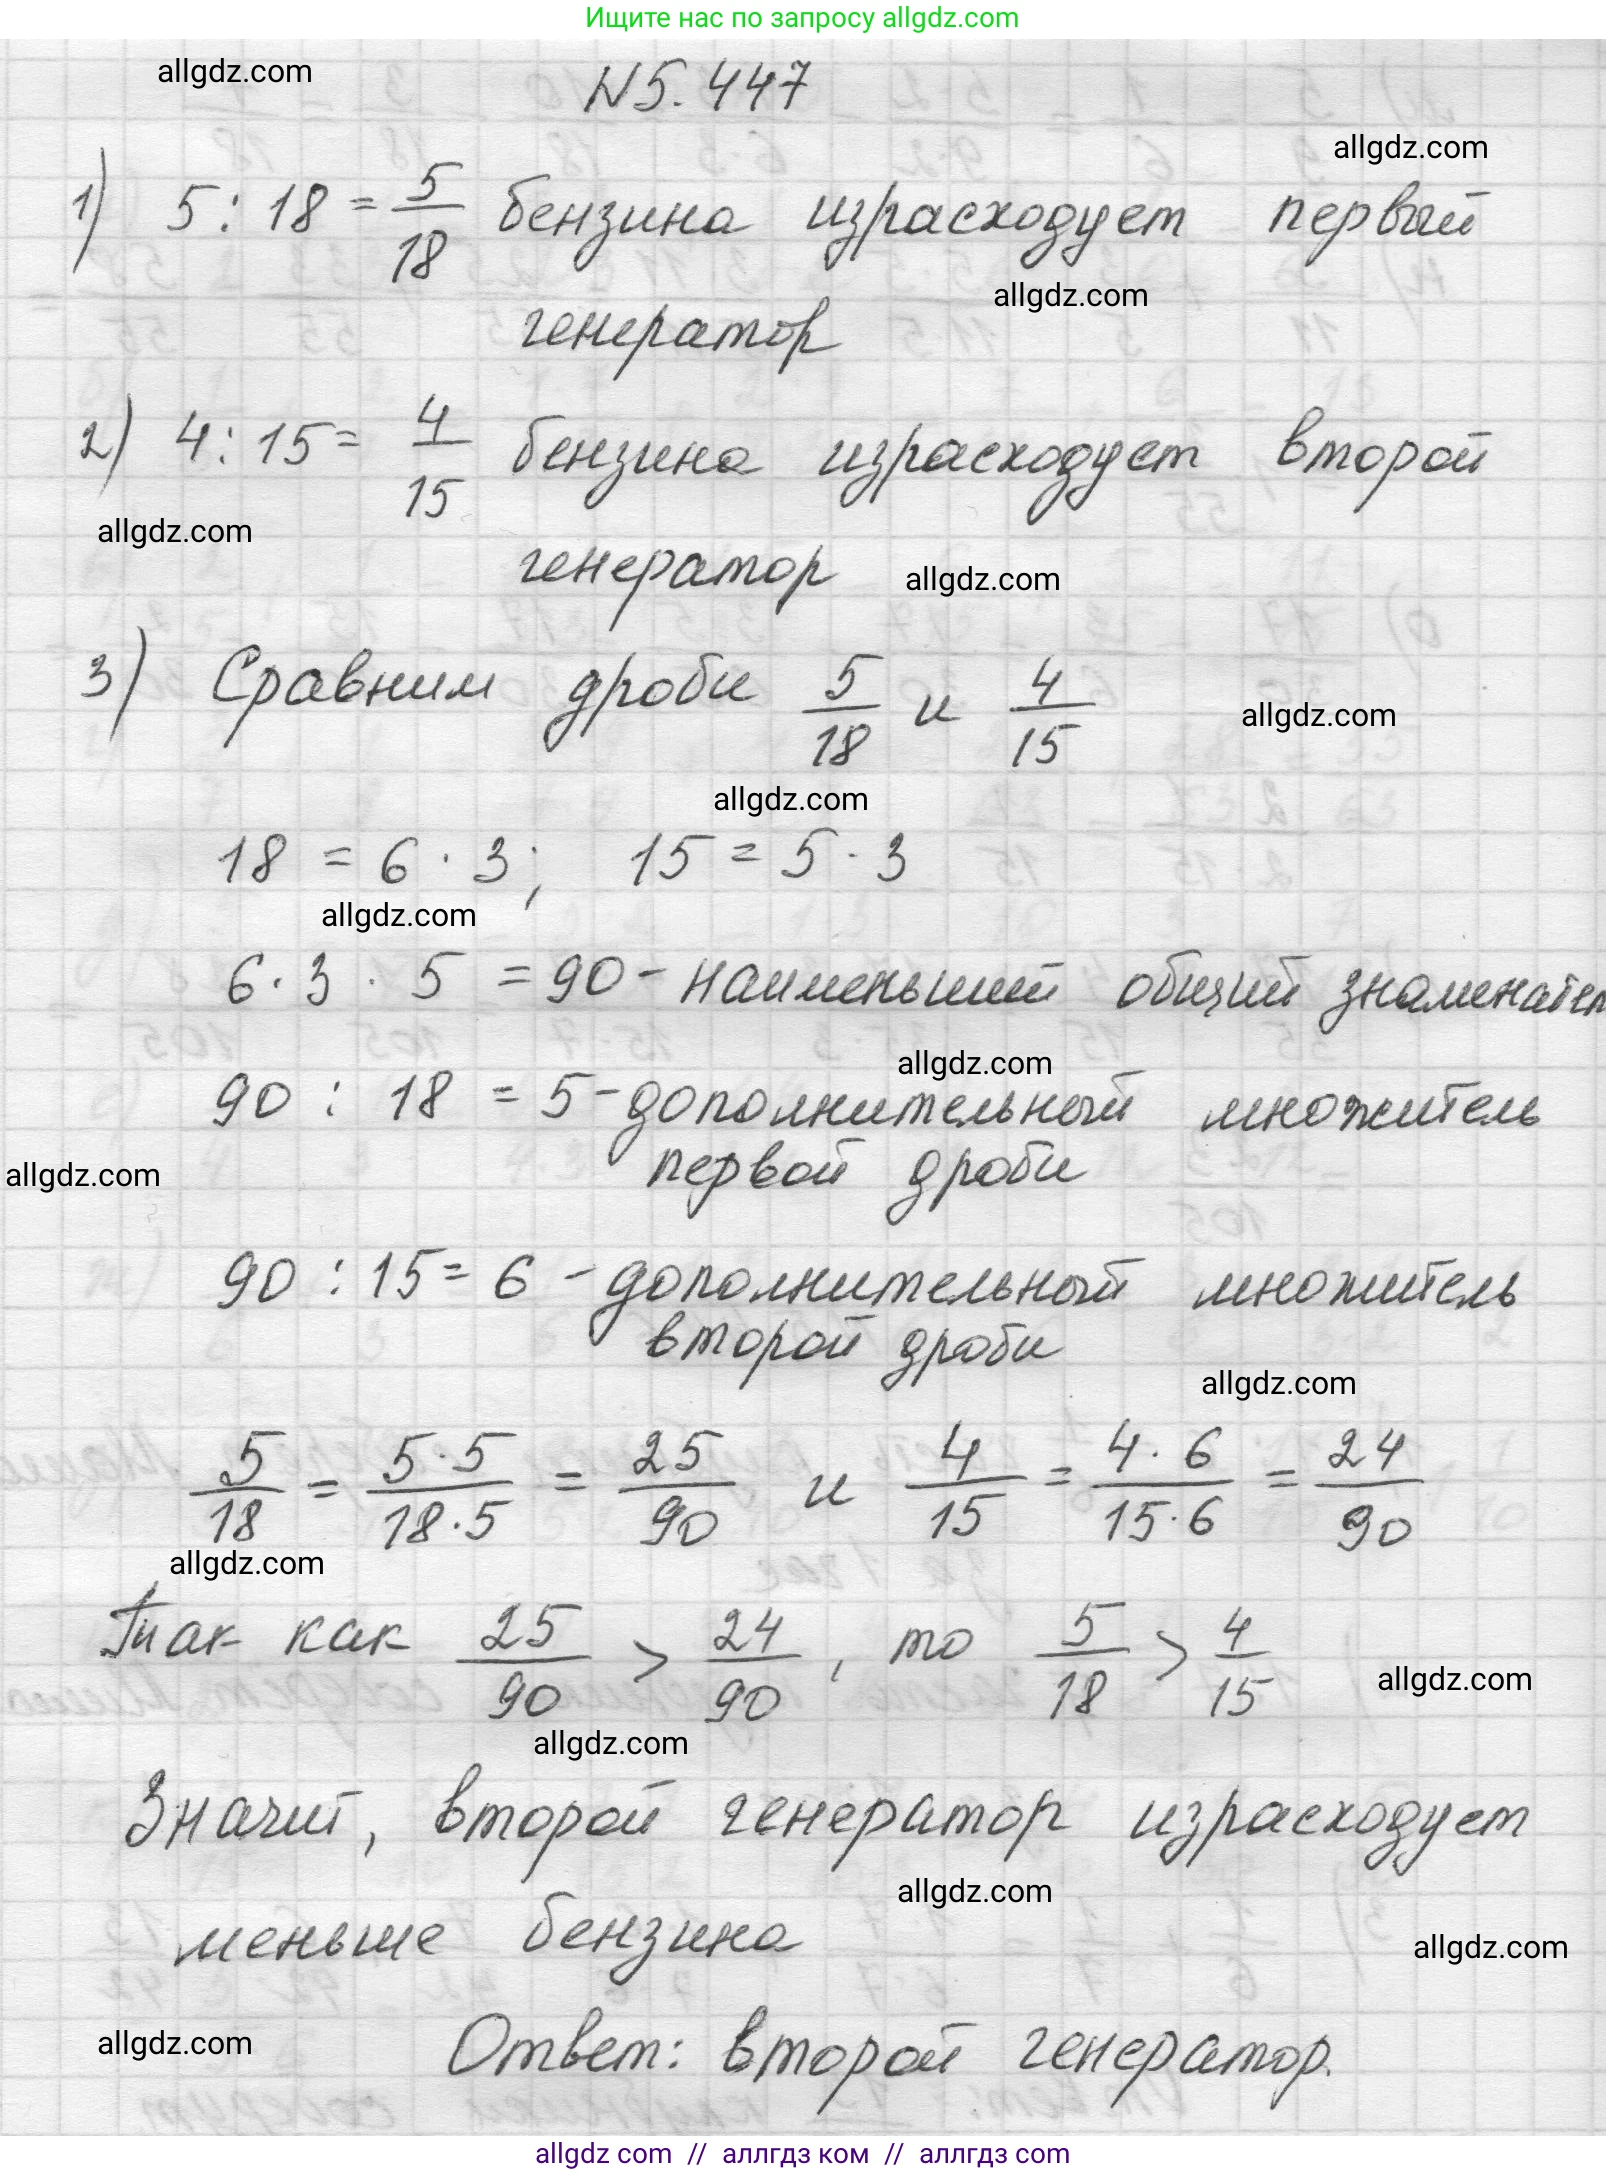 Ищите нас по запросу allgdz.com
allgdz.com
N5.447
allgdz.com
1) 5 : 18 = 5/18 бензина израсходует первый
allgdz.com
генератор
2) 4 : 15 = 4/15 бензина израсходует второй
allgdz.com
генератор allgdz.com
3) Сравним дроби 5/18 и 4/15
allgdz.com
allgdz.com
18 = 6 · 3; 15 = 5 · 3
allgdz.com
6 · 3 · 5 = 90 - наименьший общий знаменател
allgdz.com
90 : 18 = 5 - дополнительный множитель
первой дроби
allgdz.com
90 : 15 = 6 - дополнительный множитель
второй дроби
allgdz.com
5/18 = 5·5/18·5 = 25/90 и 4/15 = 4·6/15·6 = 24/90
allgdz.com
Так как 25/90 > 24/90, то 5/18 > 4/15
allgdz.com
allgdz.com
Значит, второй генератор израсходует
allgdz.com
меньше бензина
allgdz.com
allgdz.com
Ответ: второй генератор.
allgdz.com // аллгдз ком // аллгдз.com